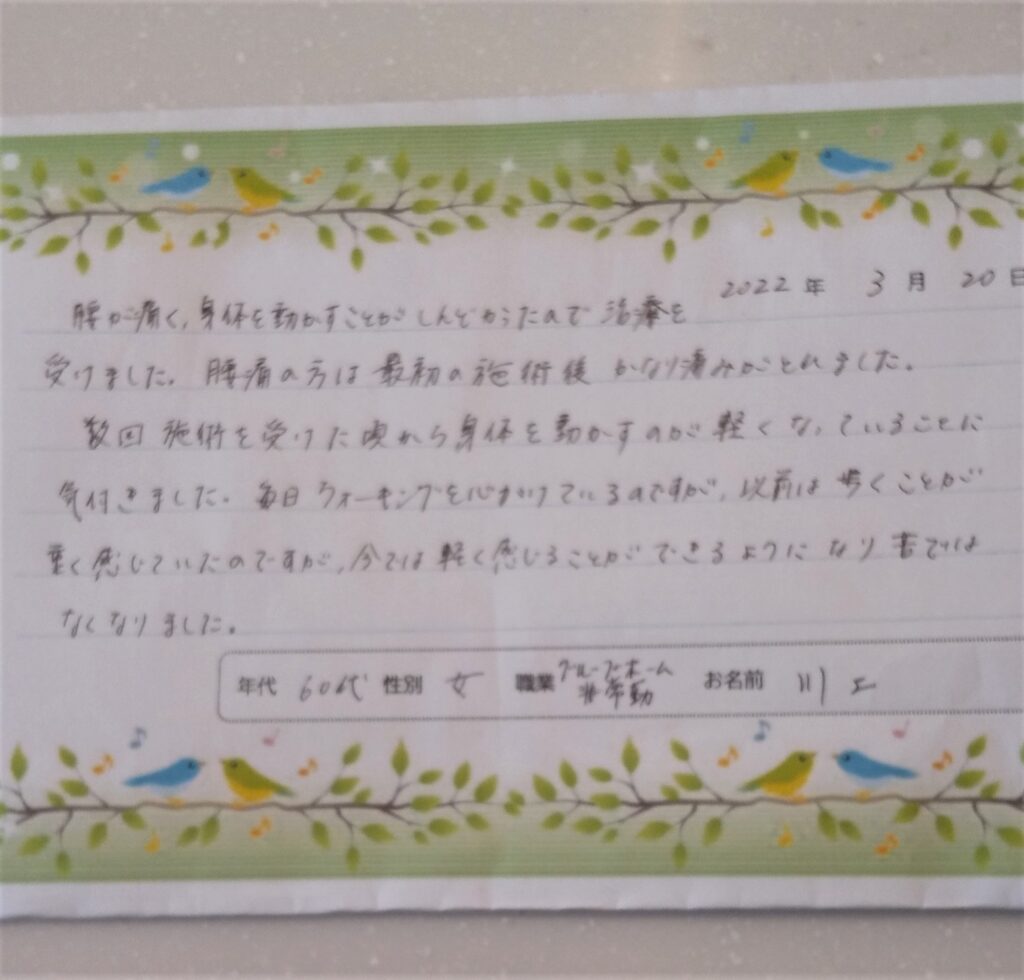 2022年 3月 20日
腰が痛く、身体を動かすことがしんどかったので治療を
受けました。腰痛の方は最初の施術後かなり痛みがとれました。
数回施術を受けた頃から身体を動かすのが軽くなっていることに
気付きました。毎日ウォーキングを心がけているのですが、以前は歩くことが
重く感じていたのですが、今では軽く感じることができるようになり苦では
なくなりました。
年代 60代 性別 女 職業 グループホーム 非常勤 お名前 川エ